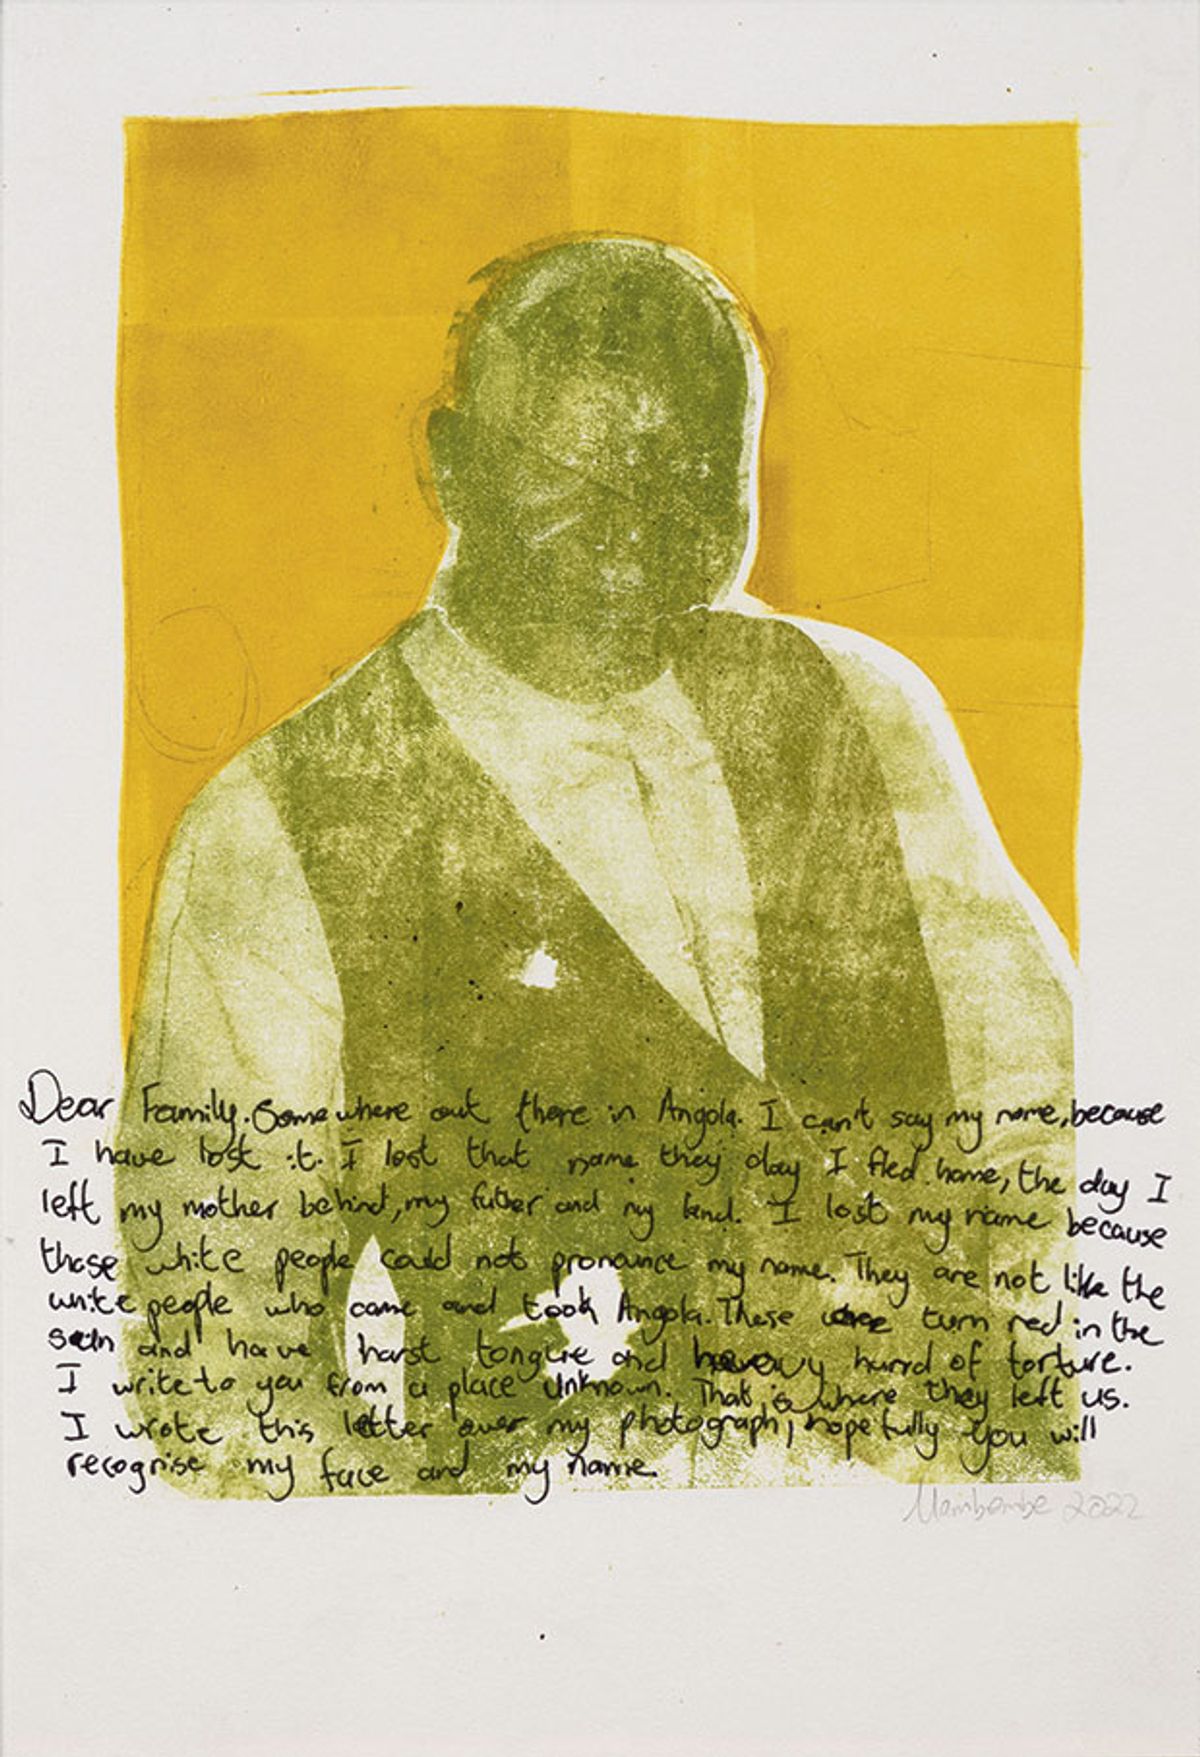 Dear Family. Somewhere out there in Angola. I can't say my name, because
I have lost it. I lost that name they day I fled home, the day I
left my mother behind, my father and my land. I lost my name because
those white people could not pronounce my name. They are not like the
white people who came and took Angola. These turn red in the
sun and have harst tongue and heavy of torture.
I write to you from a place unknown. That is where they left us.
I wrote this letter over my photograph, hopefully you will
recognise my face and my name.
2022